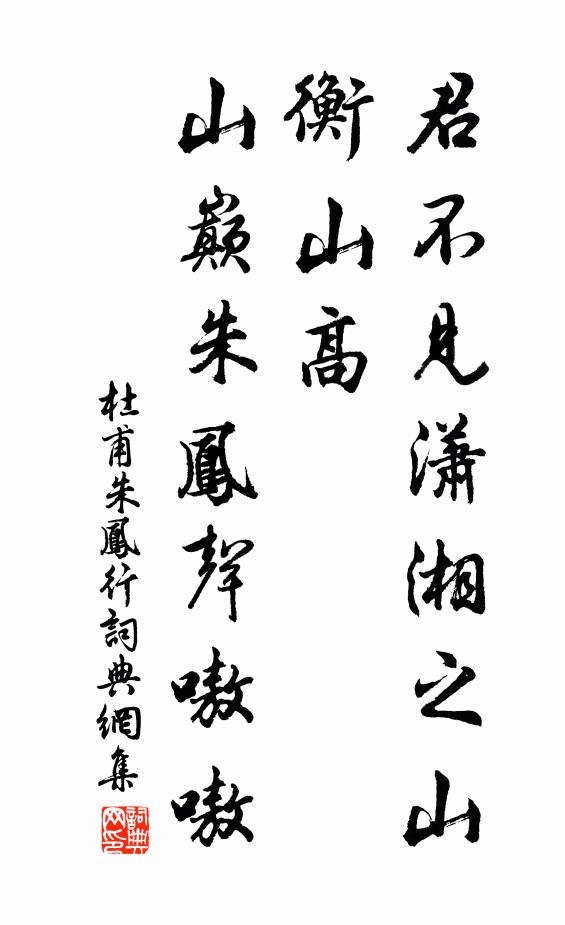 君不見瀟湘之山
衡山高
山巔朱鳳聲嗷嗷
杜甫朱鳳行詞典網集
詞典網印